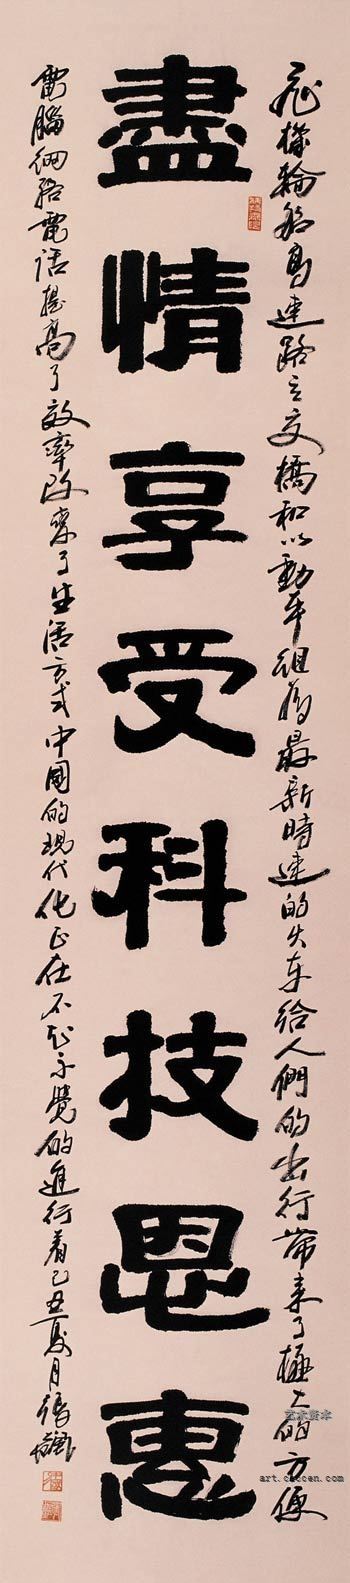 盡情享受科技恩惠
飛機輪船高速路立交橋和以動車組為最新時速的火車給人們的出行帶來了極大的方便
電腦網絡電話提高了效率改變了生活方式中國的現代化正在不知不覺的進行着己丑夏月張飆
art.cnccen.com